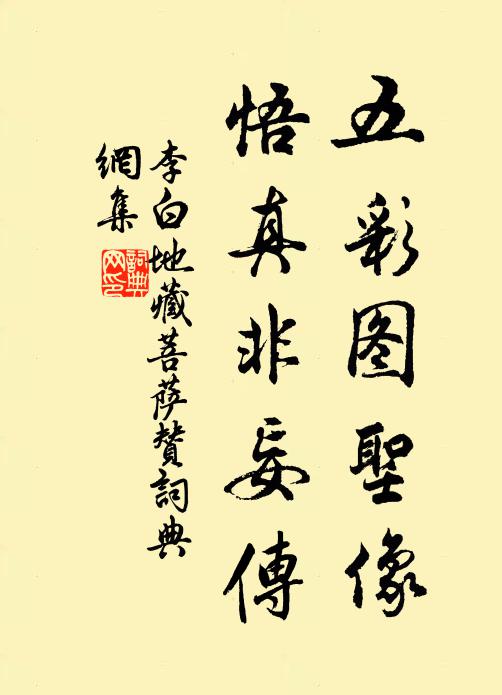 五彩图聖像
悟真非妄傳
李白地藏菩薩贊詞典
網集
詞典
网印